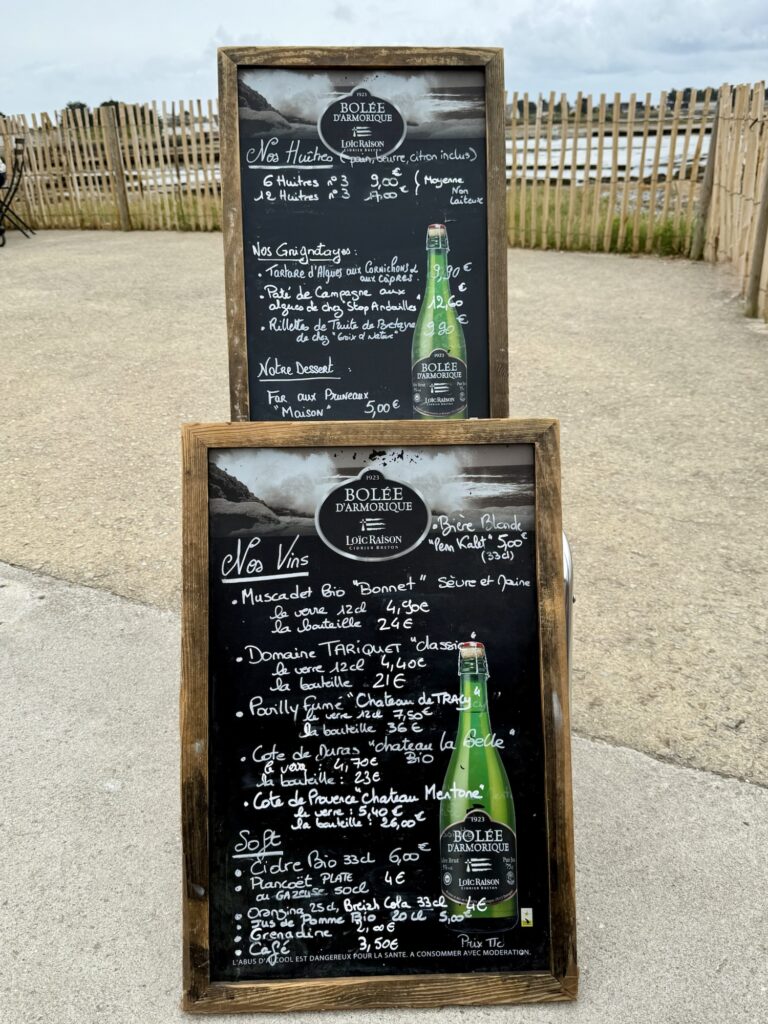 1923
BOLÉE
D'ARMORIQUE
LOÏC RAISON
CIDRIER BRETON
Nos Huîtres (pain, beurre, citron inclus)
6 Huîtres n°3 9,00€ Moyenne
12 Huîtres n°3 17,00€ Non
Laiteux
Nos Grignotages :
• Tartare d'Algues aux Cornichons &
aux câpres. 9,90€
• Pâté de Campagne aux 12,60€
algues de chez "Stop Andailles"
• Rillettes de Truite de Bretagne 9,90€
de chez "Groix & Nature"
Notre Dessert :
Far aux Pruneaux
"Maison" 5,00€
1923
BOLÉE
D'ARMORIQUE
LOÏC RAISON
CIDRIER BRETON
1923
BOLÉE
D'ARMORIQUE
LOÏC RAISON
CIDRIER BRETON
• Bière Blonde
"Penn Kalet" 5,00€
(33cl)
Nos Vins
• Muscadet Bio "Bonnet" Sèvre et Maine
le verre 12cl 4,90€
la bouteille 24€
• Domaine TARIQUET "classic"
le verre 12cl 4,40€
la bouteille 21€
• Pouilly fumé "Chateau de TRACY"
le verre 12cl 7,50€
la bouteille 36€
• Cote de Duras "chateau la Selle"
Bio
le verre : 4,70€
la bouteille : 23€
• Cote de Provence "Chateau Mentone"
le verre : 5,40€
la bouteille : 26,00€
Soft
• Cidre Bio 33cl 6,00€
• Plancoët PLATE 4€
ou GAZEUSE 50cl
• Orangina 25cl, Breizh Cola 33cl 4€
• Jus de Pomme Bio 20cl 5,00€
• Grenadine 2,00€
• Café 3,50€
1923
BOLÉE
D'ARMORIQUE
LOÏC RAISON
CIDRIER BRETON
Prix TTc
L'ABUS D'ALCOOL EST DANGEREUX POUR LA SANTE. A CONSOMMER AVEC MODERATION.